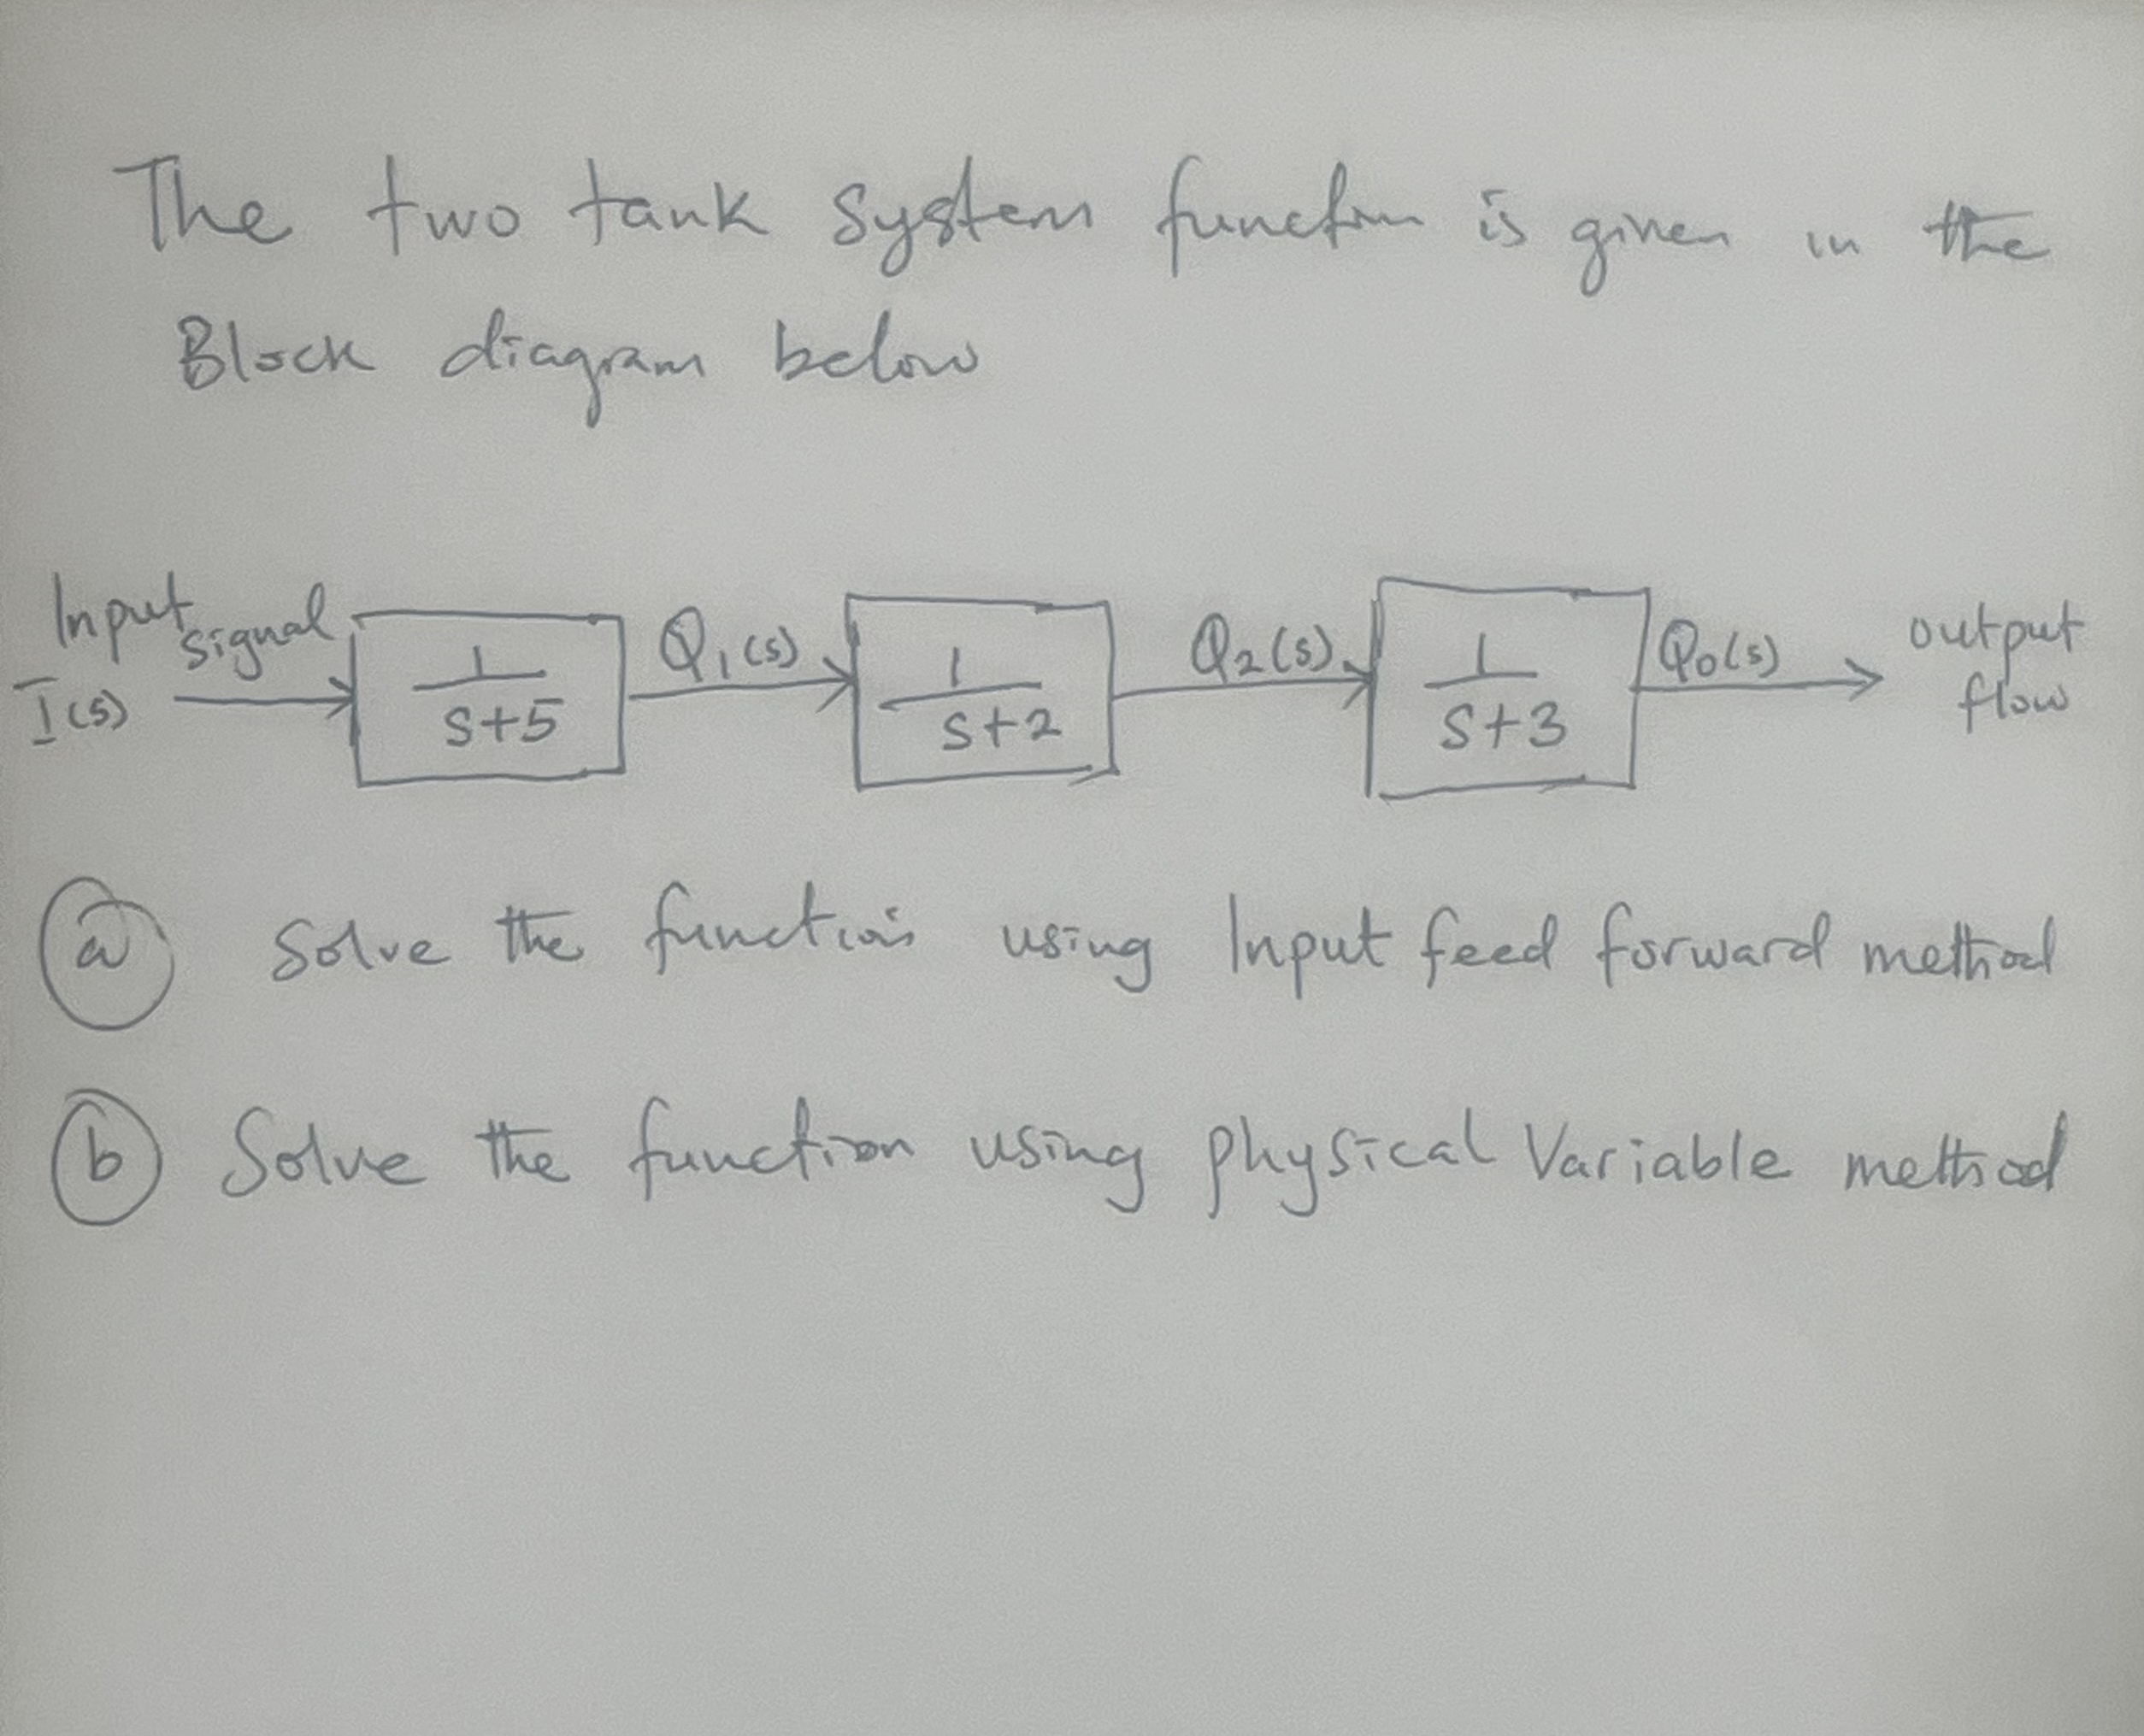 The two tank system function is given in the
Block diagram below
Input signal
I(s)
1
s+5
Q₁(s)
1
s+2
Q₂(s)
1
s+3
Q₀(s)
output
flow
a Solve the function using Input feed forward method
b Solve the function using physical Variable method